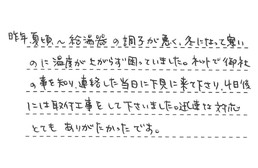 昨年夏頃～給湯器の調子が悪く、冬になって寒い
のに温度が上がらず困っていました。ネットで御社
の事を知り、連絡した当日に下見に来て下さり、4日後
には取付工事をして下さいました。迅速な対応
とてもありがたかったです。